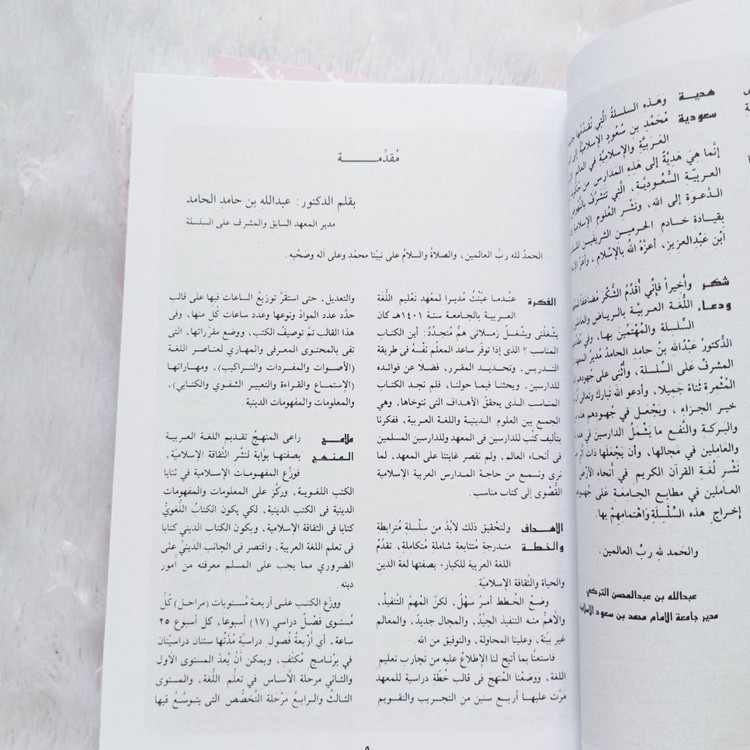 مُقدِّمَـــــة
بقلم الدكتور: عبدالله بن حامد الحامد
مدير المعهد السابق والمشرف على السلسلة
الحمدُ لله ربِّ العالمين، والصلاةُ والسلامُ على نبيّنا محمّد وعلى آله وصحْبِه.
الفكرة
عنـدمـا عُيِّنْتُ مُديـراً لمعْهـد تعْليم اللُّغَة
العربـية بالجامعـة سنة ١٤٠١هـ كان
يشغلنى ويشْغل زملائى همٌّ مُتجدّد: أين الكتاب
المناسب؟ الذى إذا توفّر ساعد المعلّم نفْسَه فى طريقة
التدريـس، وتحـديـد المقـرر، فضـلا عن فوائده
للدارسين، وبحثنا فيما حولنا، فلم نجد الكتاب
المناسب الذى يحققُ الأهداف التى نتوخاها، وهى
الجمع بين العلوم الدينية واللغة العربية، ففكرنا
بتأليف كُتب للدارسين فى المعهد وللدارسين المسلمين
فى أنحاء العالم. ولم تقصر غايتنا على المعهد،
نرى ونسمـع من حاجة المدارس العربية الإسلامية
القُصْوى إلى كتاب مناسب.
الأهـداف والخطة
ولتحْقيق ذلك لابُدَّ من سلْسلة مُترابطة
متدرجة مُتتابعة شاملة مُتكاملة، تقدِّمُ
اللغة العربية للكبار؛ بصفتها لغة الدين
والحياة والثقافة الإسلاميّة.
وضعُ الخُـطط أمـرٌ سهْلٌ، لكنَّ المُهمَّ التنفيذُ،
والأهمُّ منه التنفيذ الجيدُ، والمجال جديدٌ، والمعالم
غير بيّنة، وعلينا المحاولة، والتوفيق من الله.
فاستعنّا بما أُتيحَ لنا الإطلاعُ عليه من تجارب تعليم
اللغة، ووَضعْنا المنْهج فى قالب خُطة دراسية للمعهد
مَرّتْ عليهـا أربـع سنين من التجريب والتقويم
والتعديل، حتى استقرَّ توزيعُ الساعات فيها على قالب
حدَّد عدد الموادّ ونوعها وعدد ساعات كلٍّ منها، وفى
هذا القالب تمَّ توصيفُ الكتب، ووضع مقرّراتها، التى
تفى بالمحتوى المعرفى والمهارى لعناصر اللغة
(الأصوات والمفردات والتراكيب)، ومهاراتها
(الإستماع والقراءة والتعبير الشفوى والكتابى)،
والمعلومات والمفهومات الدينية.
ملامـح المنهج
راعى المنهجُ تقديم اللغة العربية
بصفتها بوّابة لنشْر للثقافة الإسلاميّة،
فوزّع المفهومـات الإسلامية فى ثنايا
الكتب اللغويـة، وركّز على المعلومات والمفهومات
الدينية فى الكتب الدينية، لكي يكون الكتابُ اللُّغويُّ
كتابا فى الثقافة الإسلامية، ويكون الكتاب الدينى
فى تعلم اللغة العربية، واقتصر فى الجانب الدينىِّ على
الضرورى مما يجب على المسلم معرفته من أمور
دينه.
ووزع الكتب علـى أربعـة مُستويات (مراحل) كُلُّ
مُستـوى فصْـلٌ دراسىّ (١٧) أسبوعا، كل أسبوع ٢٥
ساعة، أي أرْبعةُ فصول دراسيّة مُدّتُها سنتان دراسيتان
فى برْنامج مُكثّف، ويمكن أنْ يُعدَّ المستوى الأول
والثانى مرحلة الأساس فى تعلُّم اللُّغة، والمستوى
الثالثُ والرابعُ مَرْحلة التخصُّص التى يتوسّعُ فيها
هديـة
سعودية
وهَذه السلسلةُ الَّتِي تُقَدِّمُهَا
مُحَمّد بن سُعُود الإسلاميّة
العَربيَّة والإسلاميَّة في العالم
إنَّما هِيَ هَديَّةٌ إلى هَذه المدارس من
العربيـة السُّعُوديَّـة، الَّتي تَشرُفُ
الدَّعوة إلى الله، ونَشْر العُلوم الإسلامية
بقيـادة خـادم الحـرمين الشريفين
ابن عَبدالعزيز، أعزّهُ الله بالإسْلام،
شكر
ودعاء
وأخيراً فإنِّي أُقدِّمُ الشُّكْرَ مُضاعفاً
اللُّغة العَربيَّة بالرياض والعاملين
السلسلة والمُهْتمّين بهَا،
الدكْتورُ عبْدُالله بنُ حامد الحامدُ مُديرُ المعهد
المشرفُ على السِّلسلة، وأُثْنِي على جُهُودهم
المُثْمرة ثَناءً جَميلا، وأدعُو الله تَبارَك وتَعالى
خير الجزاءِ، ويَجْعل في جُهُودهم
والبَركة والنَّفعِ ما يَشْمل الدارسين في
العاملين في مَجالها، وأنْ يَجعلَها ذاتَ
نَشْر لُغَة القُرآن الكريم في أنْحاء الأرْض
العاملين في مطابع الجامعة على
إخراج هذه السِّلسِلة واهْتمامهمْ بهَا.
والحَمد لله ربِّ العالمين.
عبدالله بن عبدالمحسن التركي
مدير جامعة الامام محمد بن سعود الاسلامية